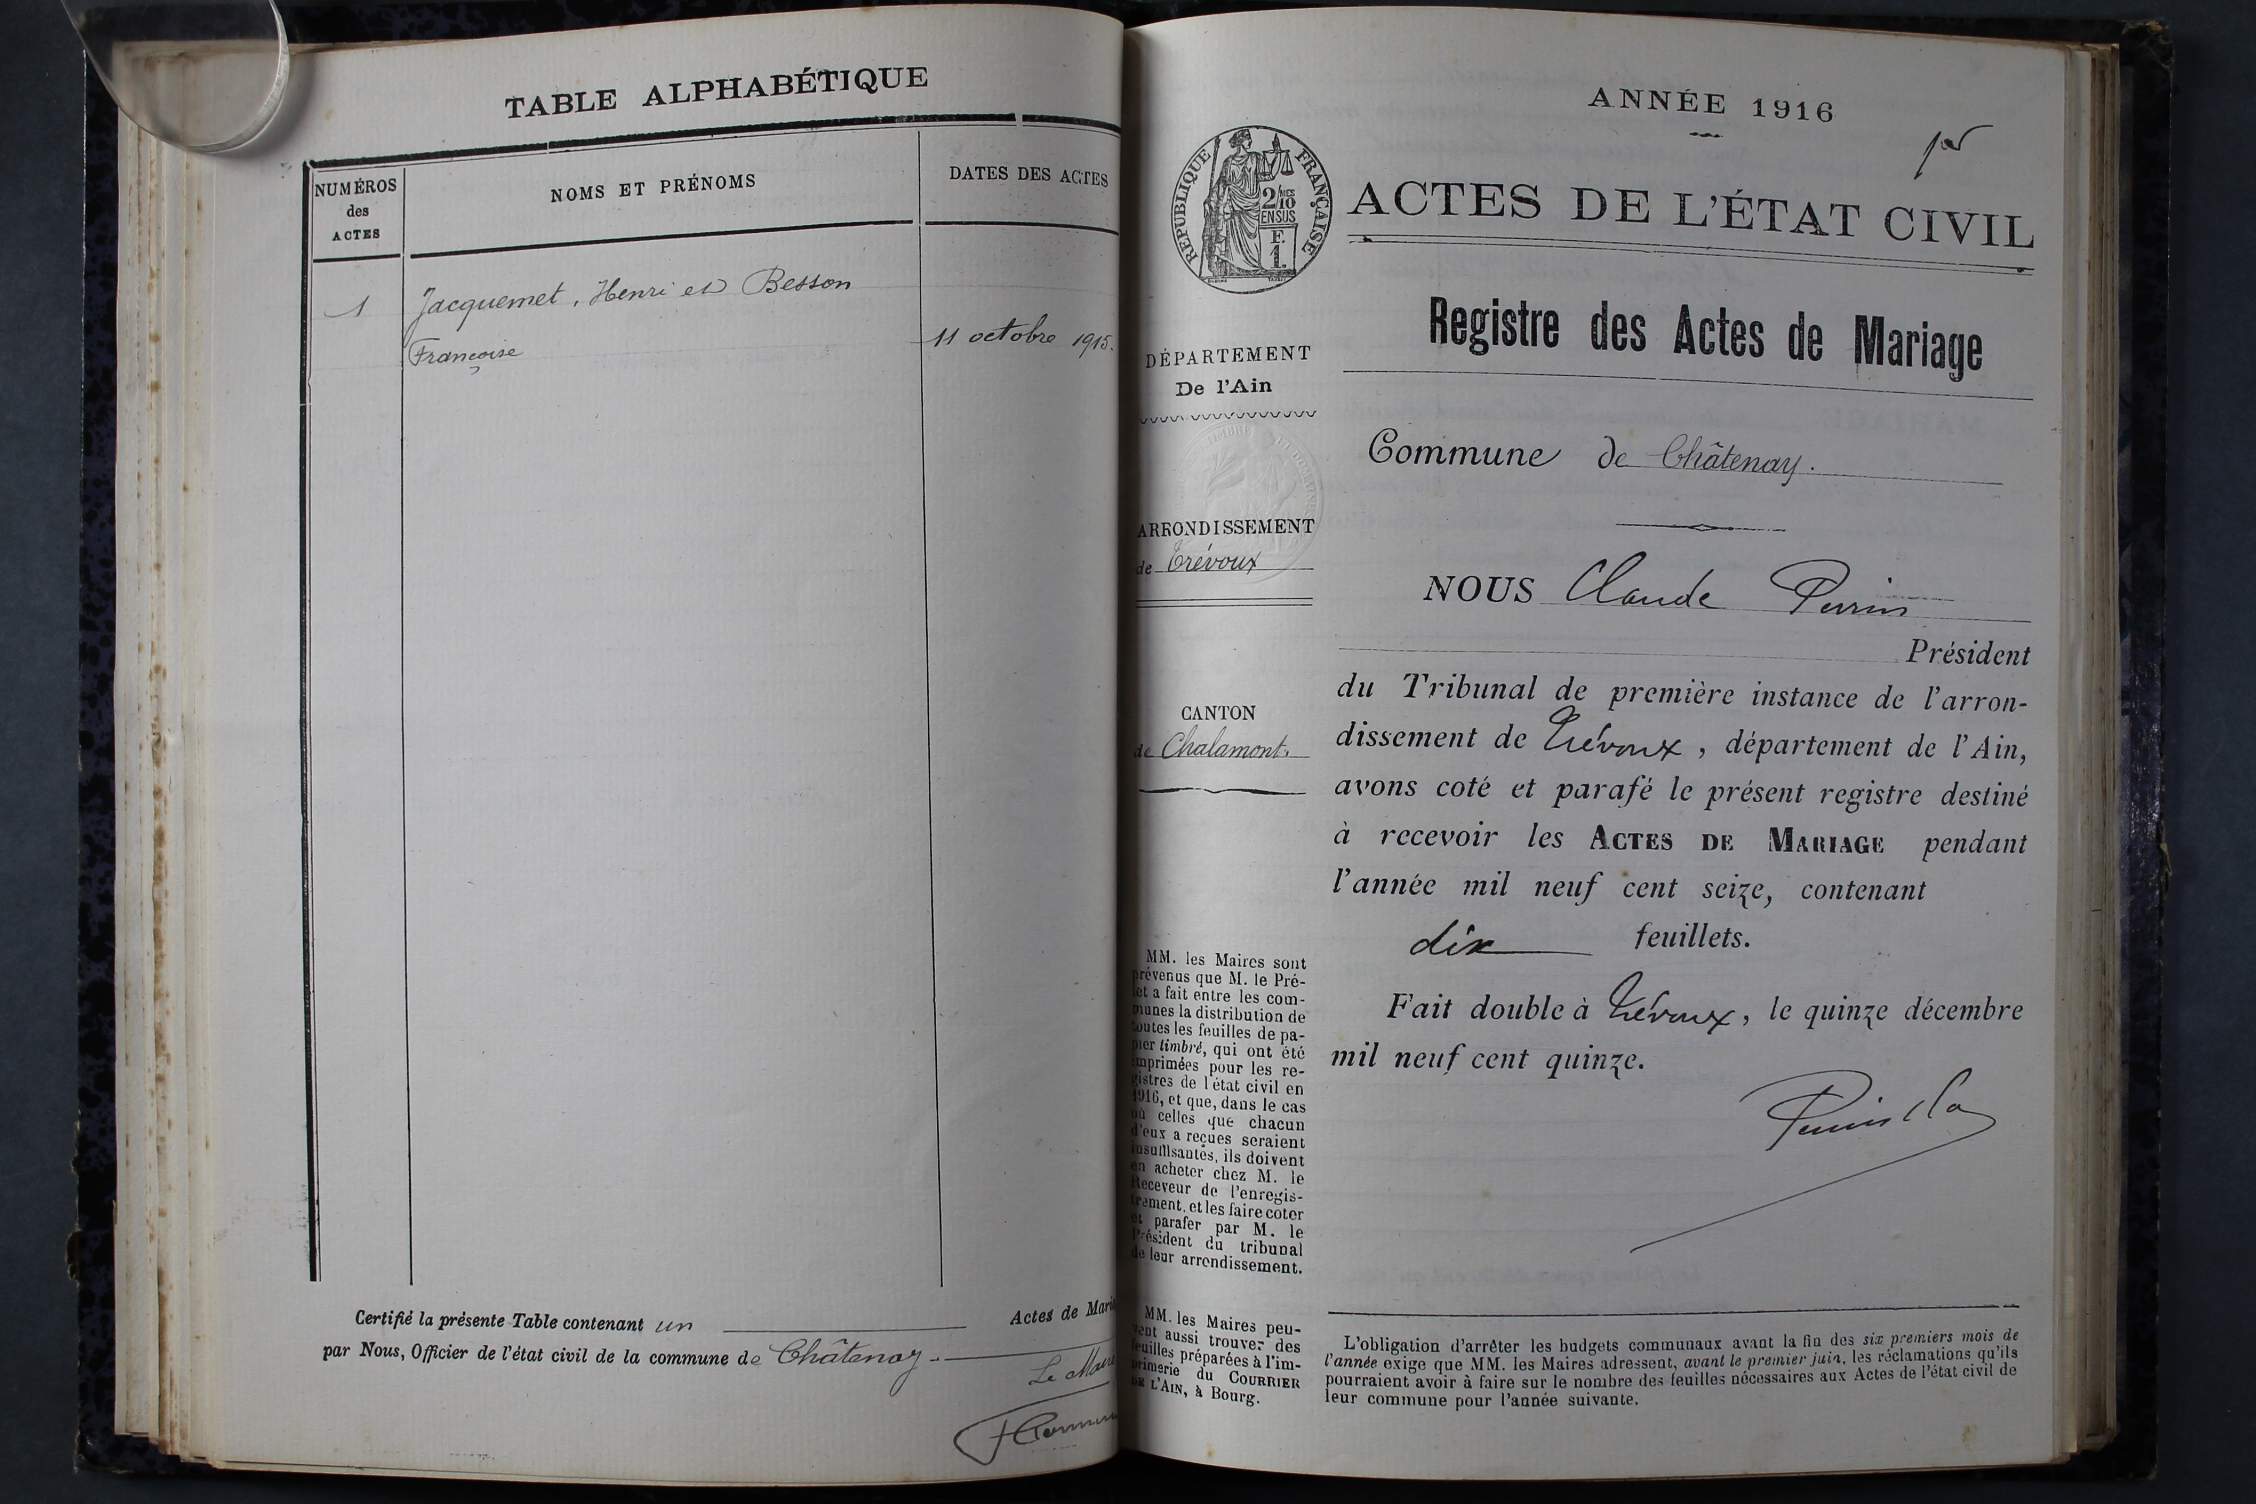 TABLE ALPHABÉTIQUE
NUMÉROS
des
ACTES
NOMS ET PRÉNOMS
DATES DES ACTES
1
Jacquemet, Henri et Besson
Françoise
11 octobre 1915.
Certifié la présente Table contenant un Actes de Mari
par Nous, Officier de l'état civil de la commune de Châtenay
Le Maire
ANNÉE 1916
RÉPUBLIQUE FRANÇAISE
2/10 MES
EN SUS
F.
1.
ACTES DE L'ÉTAT CIVIL
Registre des Actes de Mariage
DÉPARTEMENT
De l'Ain
ARRONDISSEMENT
de Trévoux
CANTON
de Chalamont.
MM. les Maires sont
prévenus que M. le Pré-
fet a fait entre les com-
munes la distribution de
toutes les feuilles de pa-
pier timbré, qui ont été
imprimées pour les re-
gistres de l'état civil en
1916, et que, dans le cas
où celles que chacun
d'eux a reçues seraient
insuffisantes, ils doivent
en acheter chez M. le
Receveur de l'enregis-
trement, et les faire coter
et parafer par M. le
Président du tribunal
de leur arrondissement.
MM. les Maires peu-
vent aussi trouver des
feuilles préparées à l'im-
primerie du COURRIER
DE L'AIN, à Bourg.
Commune de Châtenay.
NOUS Claude Perrin
Président
du Tribunal de première instance de l'arron-
dissement de Trévoux, département de l'Ain,
avons coté et parafé le présent registre destiné
à recevoir les ACTES DE MARIAGE pendant
l'année mil neuf cent seize, contenant
dix feuillets.
Fait double à Trévoux, le quinze décembre
mil neuf cent quinze.
L'obligation d'arrêter les budgets communaux avant la fin des six premiers mois de
l'année exige que MM. les Maires adressent, avant le premier juin, les réclamations qu'ils
pourraient avoir à faire sur le nombre des feuilles nécessaires aux Actes de l'état civil de
leur commune pour l'année suivante.